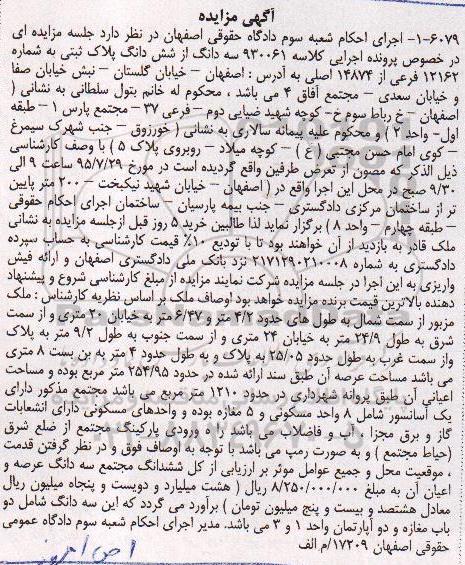 آگهی مزایده
۱-۶۰۷۹- اجرای احکام شعبه سوم دادگاه حقوقی اصفهان در نظر دارد جلسه مزایده ای
در خصوص پرونده اجرایی کلاسه ۹۳۰۰۶۱ سه دانگ از شش دانگ پلاک ثبتی به شماره
۱۲۱۶۲ فرعی از ۱۴۸۷۴ اصلی به آدرس : اصفهان – خیابان گلستان – نبش خیابان صفا
و خیابان سعدی – مجتمع آفاق ۴ می باشد ، محکوم له خانم بتول سلطانی به نشانی (
اصفهان – خ رباط سوم خ- کوچه شهید ضیایی دوم – فرعی ۳۷ – مجتمع پارس ۱ – طبقه
اول- واحد ۲ ) و محکوم علیه پیمانه سالاری به نشانی ( خورزوق – جنب شهرک سیمرغ
– کوی امام حسن مجتبی (ع ) – کوچه میلاد – روبروی پلاک ۵ ) با وصف کارشناسی
ذیل الذکر که مصون از تعرض طرفین واقع گردیده است در مورخ ۹۵/۷/۲۹ ساعت ۹ الی
۹/۳۰ صبح در محل این اجرا واقع در ( اصفهان – خیابان شهید نیکبخت – ۲۰۰ متر پایین
تر از ساختمان مرکزی دادگستری – جنب بیمه پارسیان – ساختمان اجرای احکام حقوقی
– طبقه چهارم – واحد ۸ ) برگزار نماید لذا طالبین خرید ۵ روز قبل ازجلسه مزایده به نشانی
ملک قادر به بازدید از آن خواهند بود تا با تودیع ۱۰٪ قیمت کارشناسی به حساب سپرده
دادگستری به شماره ۲۱۷۱۲۹۰۲۱۰۰۰۸ نزد بانک ملی دادگستری اصفهان و ارائه فیش
واریزی به این اجرا در جلسه مزایده شرکت نمایند مزایده از مبلغ کارشناسی شروع و پیشنهاد
دهنده بالاترین قیمت برنده مزایده خواهد بود اوصاف ملک بر اساس نظریه کارشناس : ملک
مزبور از سمت شمال به طول های حدود ۴/۲ متر و ۶/۴۷ متر به خیابان ۲۰ متری و از سمت
شرق به طول ۲۴/۹ متر به خیابان ۲۴ متری و از سمت جنوب به طول ۹/۲ متر به پلاک
واز سمت غرب به طول حدود ۲۵/۰۵ به پلاک و به طول حدود ۴ متر به بن بست ۸ متری
می باشد مساحت عرصه آن طبق سند ارائه شده در حدود ۲۵۴/۹۵ متر مربع بوده و مساحت
اعیانی آن طبق پروانه شهرداری در حدود ۱۲۱۰ متر مربع می باشد مجتمع مذکور دارای
یک آسانسور شامل ۸ واحد مسکونی و ۵ مغازه بوده و واحدهای مسکونی دارای انشعابات
گاز و برق مجزا و آب و فاضلاب می باشد . ه ورودی پارکینگ مجتمع از ضلع شرق
(حیاط مجتمع ) و به صورت رمپ می باشد با توجه به اوصاف فوق و در نظر گرفتن قدمت
، موقعیت محل و جمیع عوامل موثر بر ارزیابی از کل ششدانگ مجتمع سه دانگ عرصه و
اعیان آن به مبلغ ۸/۲۵۰/۰۰۰/۰۰۰ ریال ( هشت میلیارد و دویست و پنجاه میلیون ریال
معادل هشتصد و بیست و پنج میلیون تومان ) برآورد می گردد که این سه دانگ شامل دو
باب مغازه و دو آپارتمان واحد ۱ و ۳ می باشد. مدیر اجرای احکام شعبه سوم دادگاه عمومی
حقوقی اصفهان ۱۷۲۰۹/م الف